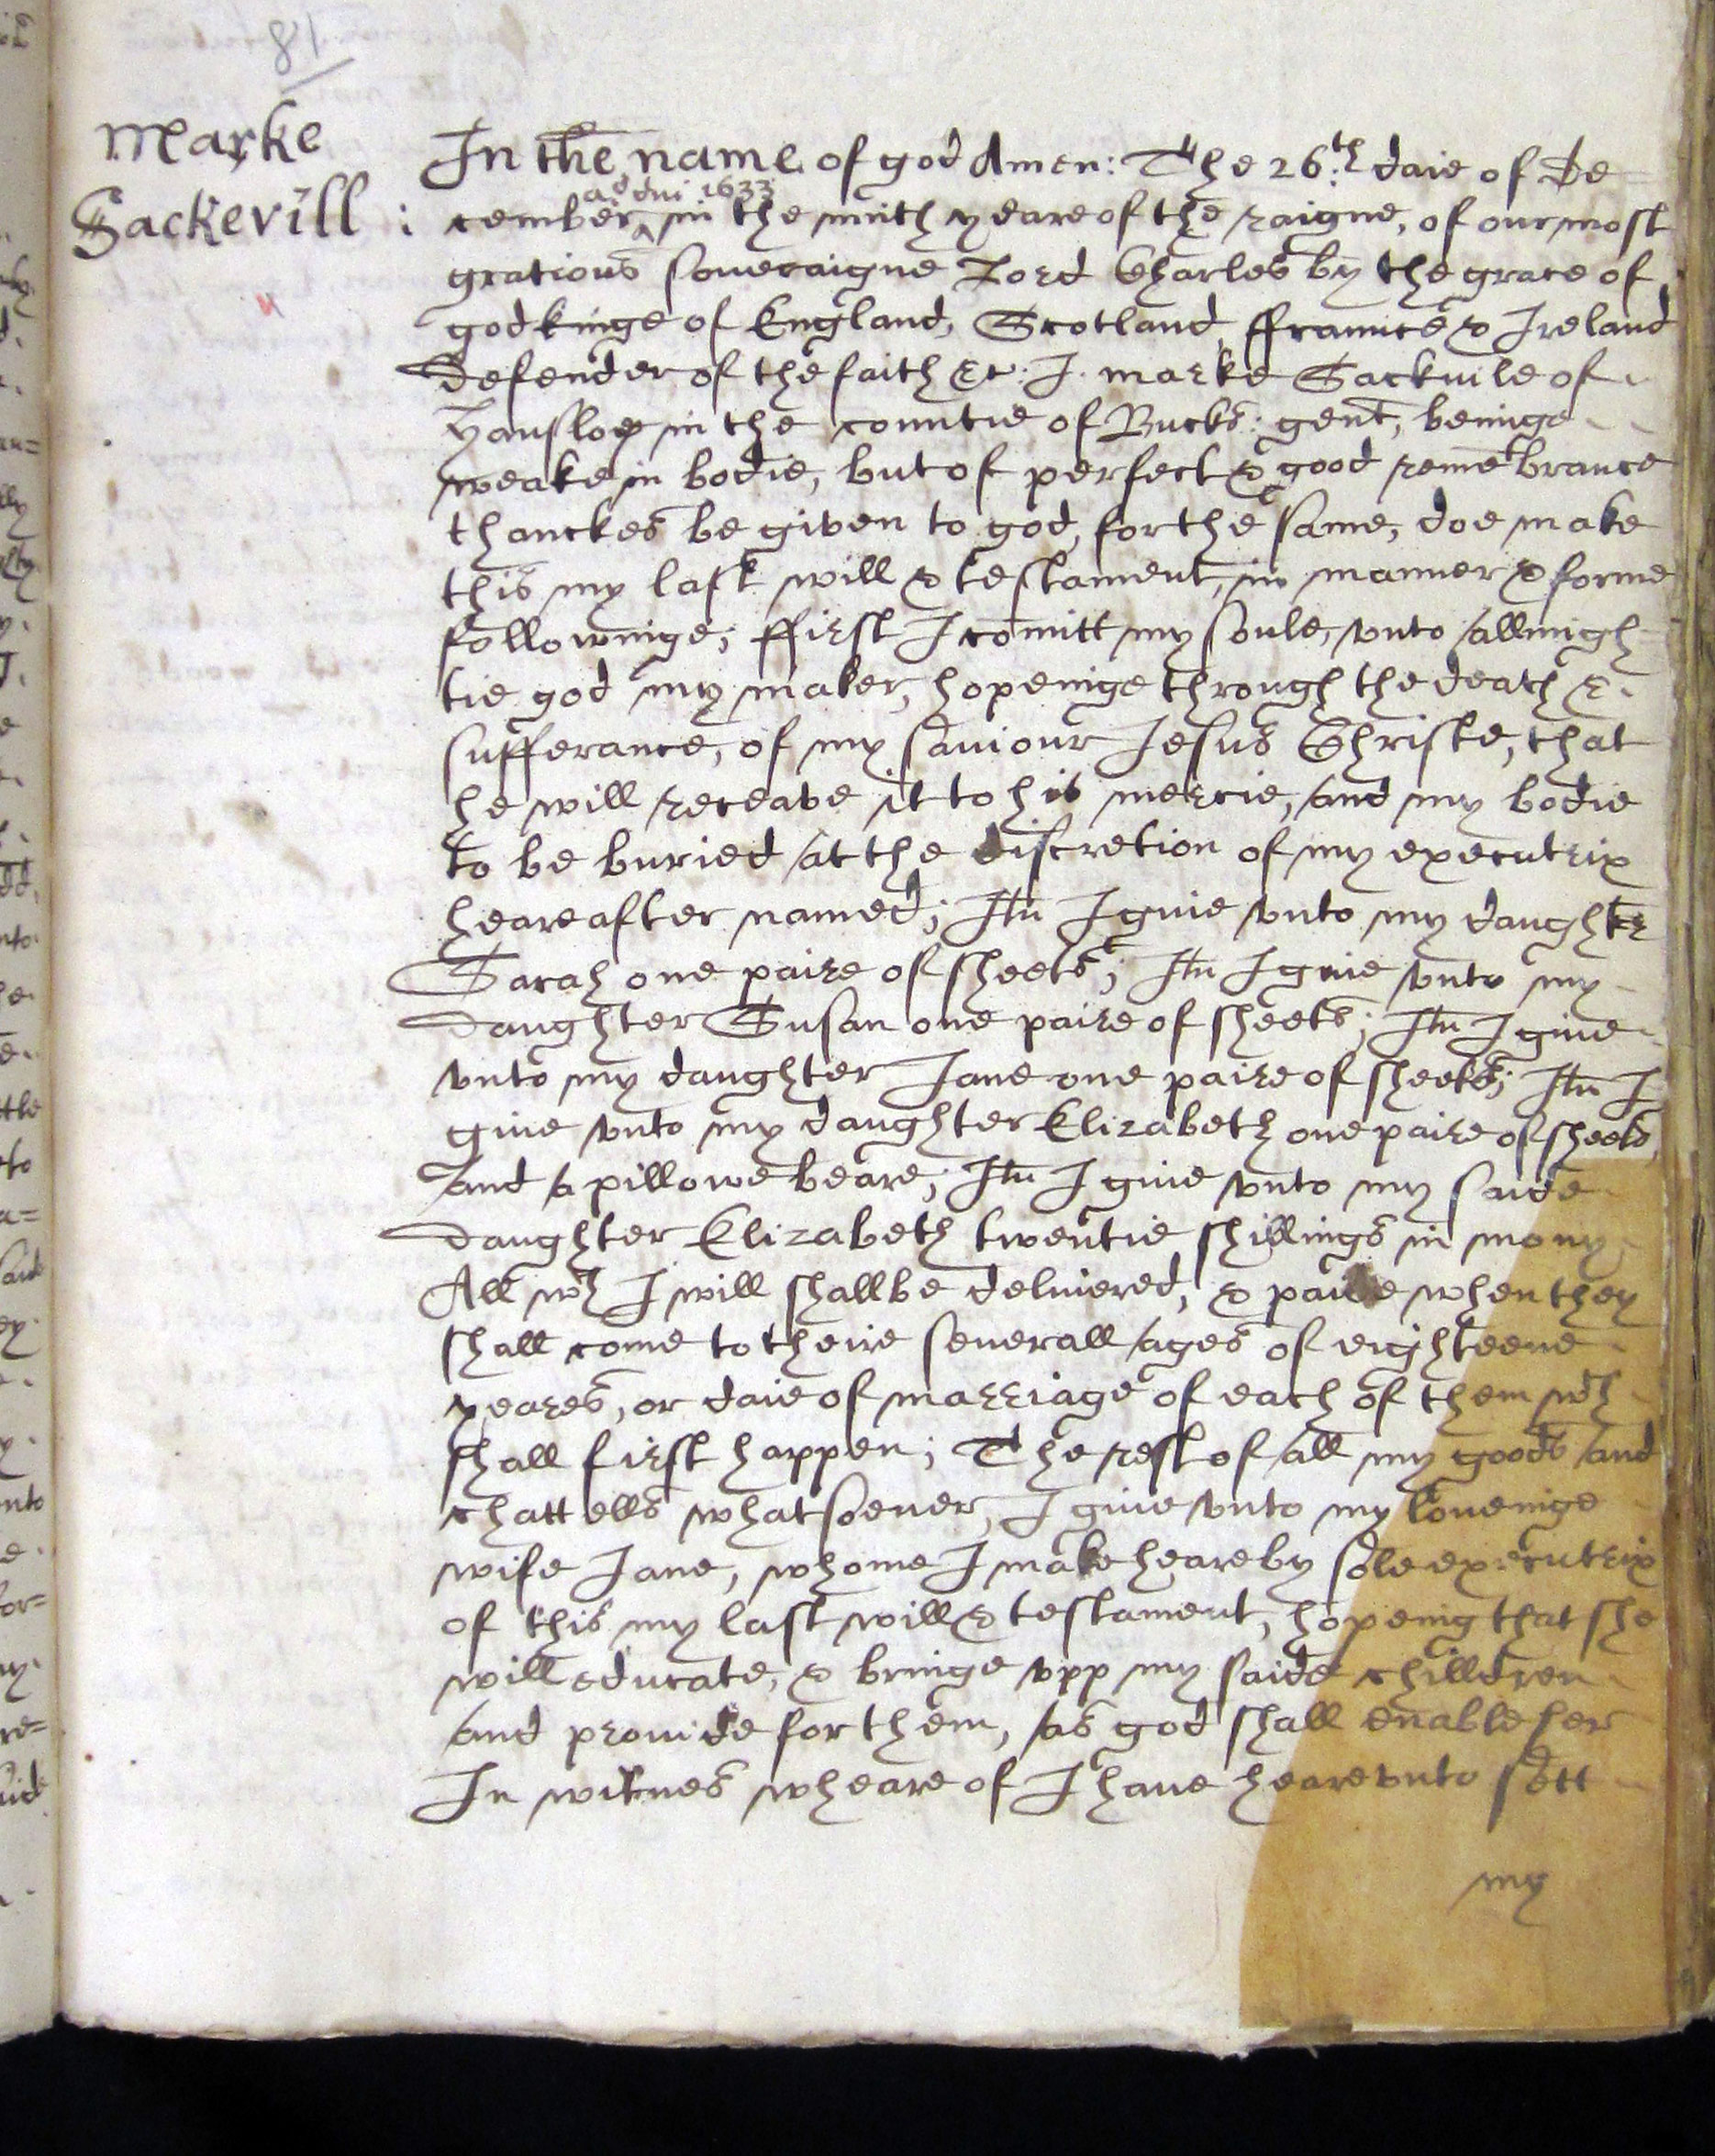 81
Marke
Sackevill :
In the name of god Amen: The 26:th daie of De
ao dni 1633
cember ^ in the ninth yeare of the raigne, of our most
gratious soueraigne Lord Charles by the grace of
god kinge of England, Scotland, ffraunce & Ireland
Defender of the faith &c: I marke Sackuile of
Hanslop in the countie of Bucks: gent, beinge
weake in bodie, but of perfect & good remēbrance
thanckes be given to god, for the same, doe make
this my last will & testament, in manner & forme
followinge; ffirst I comitt my soule, vnto allmigh-
tie god my maker, hopeinge through the death &
sufferance, of my saviour Jesus Christe, that
he will receave it to his mercie, and my bodie
to be buried at the discretion of my executrix
heareafter named; Itm I giue vnto my daughter
Sarah one paire of sheets; Itm I giue vnto my
daughter Susan one paire of sheets; Itm I giue
vnto my daughter Jane one paire of sheets; Itm I
giue vnto my daughter Elizabeth one paire of sheets
and a pillowe beare; Itm I giue vnto my saide
daughter Elizabeth twentie shillings in mony
All wch I will shallbe deliuered, & paide when they
shall come to theire seuerall ages of eighteene
yeares, or daie of marriage of each of them wch
shall first happen; The rest of all my goods and
chattells whatsoeuer, I giue vnto my loueinge
wife Jane, whome I make heareby sole executrix
of this my last will & testament, hopeing that she
will educate, & bringe vpp my saide chilldren
and prouide for them, as god shall enable her
In witnes wheare of I haue hearevnto sett
my